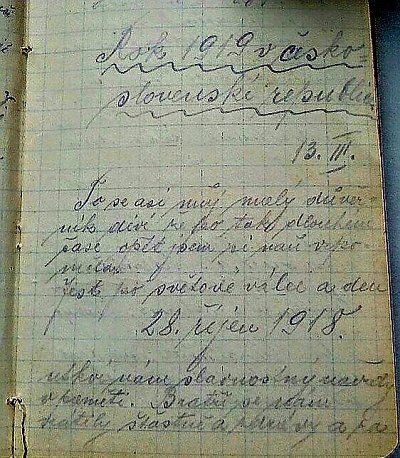 Rok 1919 v česko-
slovenské republice
13. III.
To se asi můj malý důver-
ník diví že po tak dlouhém
čase opět jsem si naň vzpo-
mněla.
Jest po světové válce a den
28. říjen 1918.
nám slavnostný navždy
v paměti. Bratři se nám
vrátily šťastně a zdrávy a